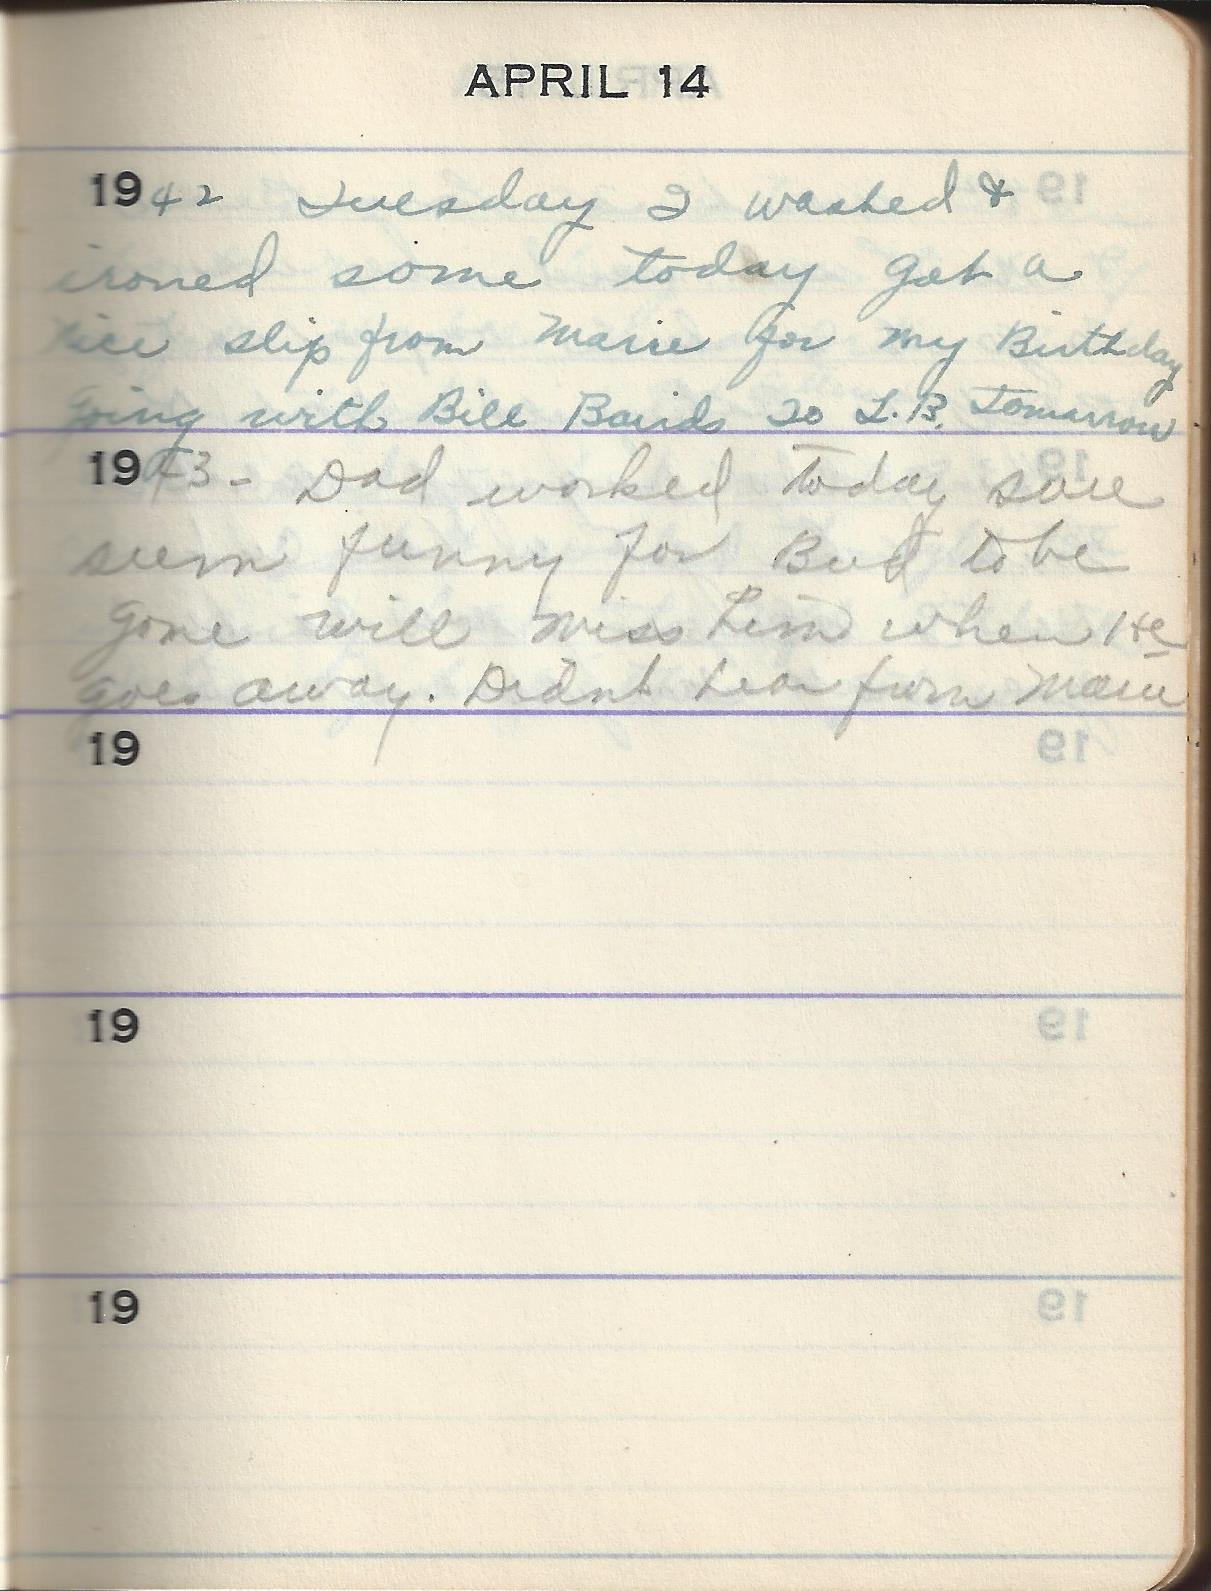 APRIL 14
1942 Tuesday I washed &
ironed some today got a
nice slip from Marie for my Birthday
going with Bill Bairds to L.B. Tomarrow
1943- Dad worked today sure
seem funny for Bud to be
gone will miss him when He
goes away. Didnt hear from Marie
19
19
19